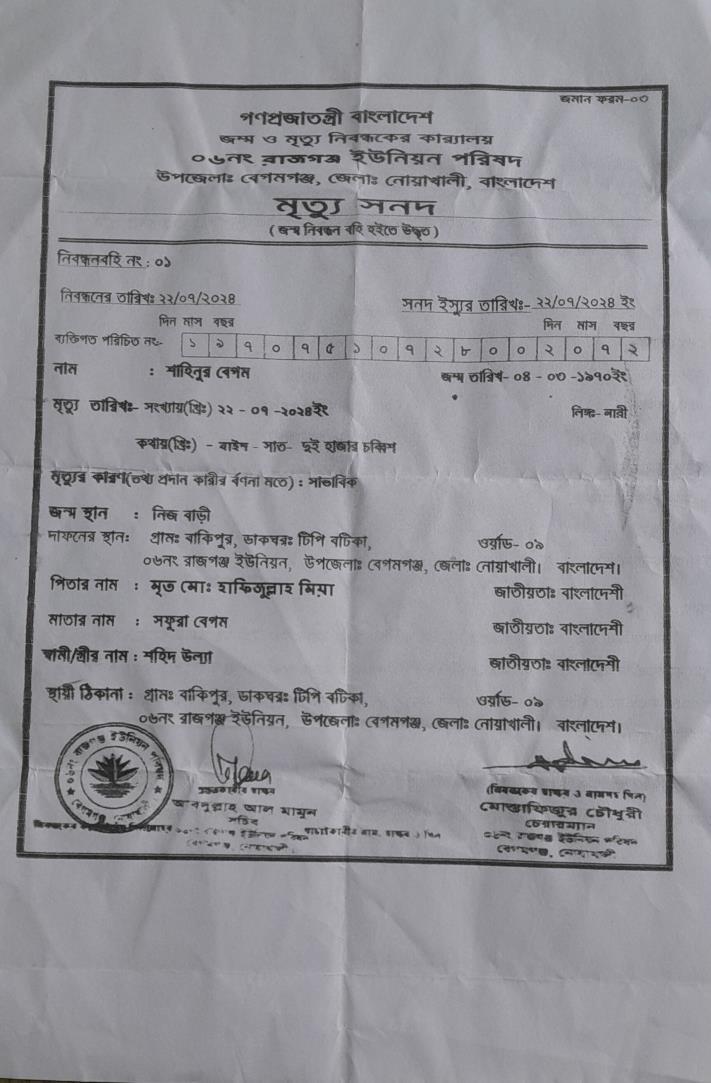 জমান ফরম-০৩
গণপ্রজাতন্ত্রী বাংলাদেশ
জন্ম ও মৃত্যু নিবন্ধকের কার্যালয়
০৬নং রাজগঞ্জ ইউনিয়ন পরিষদ
উপজেলাঃ বেগমগঞ্জ, জেলাঃ নোয়াখালী, বাংলাদেশ
মৃত্যু সনদ
(জন্ম নিবন্ধন বহি হইতে উদ্ধৃত)
নিবন্ধনবহি নং : ০৯
নিবন্ধনের তারিখঃ ২২/০৭/২০২৪ সনদ ইস্যুর তারিখঃ- ২২/০৭/২০২৪ ইং
দিন মাস বছর দিন মাস বছর
ব্যক্তিগত পরিচিত নং- ১৯৭০৭৫১০৭২৮০০২০৭২
নাম : শাহিনুর বেগম জন্ম তারিখ- ০৪ - ০৩ -১৯৭০ইং
মৃত্যু তারিখঃ- সংখ্যায়(খ্রিঃ) ২২ - ০৭ -২০২৪ইং লিঙ্গ- নারী
কথায়(খ্রিঃ) - বাইশ - সাত- দুই হাজার চব্বিশ
মৃত্যুর কারণ(তথ্য প্রদান কারীর বর্ণনা মতে) : সাভাবিক
জন্ম স্থান : নিজ বাড়ী
দাফনের স্থান: গ্রামঃ বাকিপুর, ডাকঘরঃ টিপি বটিকা, ওর্য়াড- ০৯
০৬নং রাজগঞ্জ ইউনিয়ন, উপজেলাঃ বেগমগঞ্জ, জেলাঃ নোয়াখালী। বাংলাদেশ।
পিতার নাম : মৃত মোঃ হাফিজুল্লাহ মিয়া জাতীয়তাঃ বাংলাদেশী
মাতার নাম : সফুরা বেগম জাতীয়তাঃ বাংলাদেশী
স্বামী/স্ত্রীর নাম : শহিদ উল্যা জাতীয়তাঃ বাংলাদেশী
স্থায়ী ঠিকানা : গ্রামঃ বাকিপুর, ডাকঘরঃ টিপি বটিকা, ওর্য়াড- ০৯
০৬নং রাজগঞ্জ ইউনিয়ন, উপজেলাঃ বেগমগঞ্জ, জেলাঃ নোয়াখালী। বাংলাদেশ।
০৬নং রাজগঞ্জ ইউনিয়ন পরিষদ
বেগমগঞ্জ, নোয়াখালী
আবদুল্লাহ আল মামুন
সচিব
(নিবন্ধকের স্বাক্ষর ও নামসহ সিল)
মোস্তাফিজুর চৌধুরী
চেয়ারম্যান
০৬নং রাজগঞ্জ ইউনিয়ন পরিষদ
বেগমগঞ্জ, নোয়াখালী